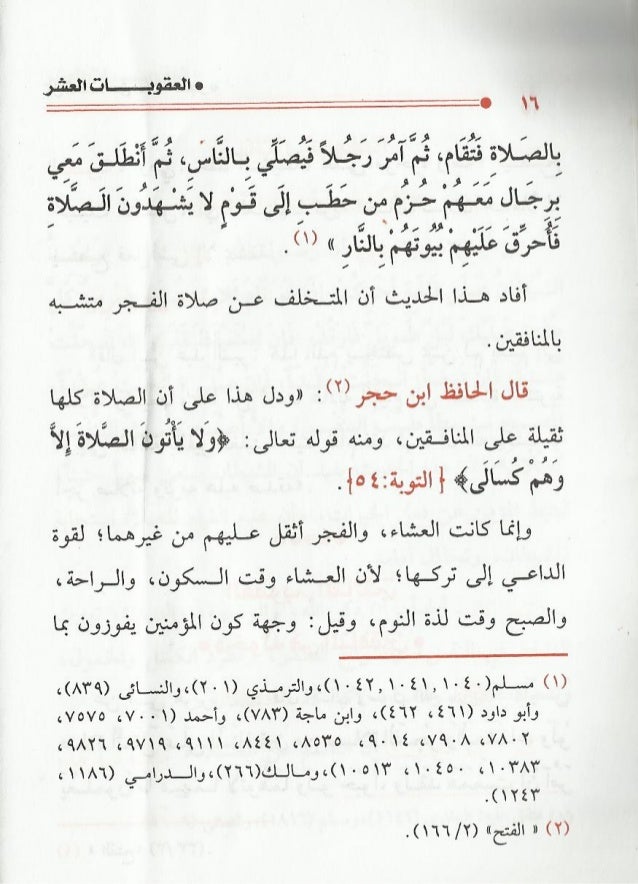 ١٦ • العقوبـــــــات العشر
بِالصَـلاةِ فَتُقَام، ثُـمَّ آمُرَ رَجُـلاً فَيُصَلِّي بِـالنَّاسِ، ثُـمَّ أَنْطَلِـقَ مَعِي
بِرِجَـال مَعَـهُـمْ حُـزُم من حَطَـبٍ إِلَى قَـوْمٍ لا يَشْـهَدُونَ الـصَّلَاةِ
فَأُحَرِّقَ عَلَيْهِمْ بُيُوتَهُمْ بِالنَّارِ » (١) .
أفاد هـذا الحديث أن المتـخلف عـن صلاة الفـجر متشـبه
بالمنافقين.
قال الحافظ ابن حجر (٢): «ودل هذا على أن الصلاة كلها
ثقيلة على المنافـقين، ومنه قوله تعالى: ﴿وَلا يَأْتُونَ الصَّلاةَ إِلاَّ
وَهُمْ كُسَالَى﴾ {التوبة:٥٤}.
وإنما كانت العشاء، والفجر أثقل عـليهم من غيرهما؛ لقوة
الداعـي إلى تركـها؛ لأن العـشاء وقت الـسكون، والـراحة،
والصبح وقت لذة النوم، وقيل: وجهة كون المؤمنين يفوزون بما
(١) مسـلم(١٠٤٠, ١٠٤١, ١٠٤٢)،والترمـذي (٢٠١)،والنسـائى (٨٣٩)،
وأبو داود (٤٦١، ٤٦٢)، وابن ماجة (٧٨٣)، وأحمد (٧٠٠١، ٧٥٧٥،
٧٨٠٢، ٧٩٠٨، ٩٠١٤، ٨٥٣٥، ٨٤٤١، ٩١١١، ٩٧١٩، ٩٨٢٦،
١٠٣٨٣، ١٠٤٥٠، ١٠٥١٣)،ومـالـك(٢٦٦)،والـدرامـي (١١٨٦،
١٢٤٣).
(٢) « الفتح» (٢/ ١٦٦).